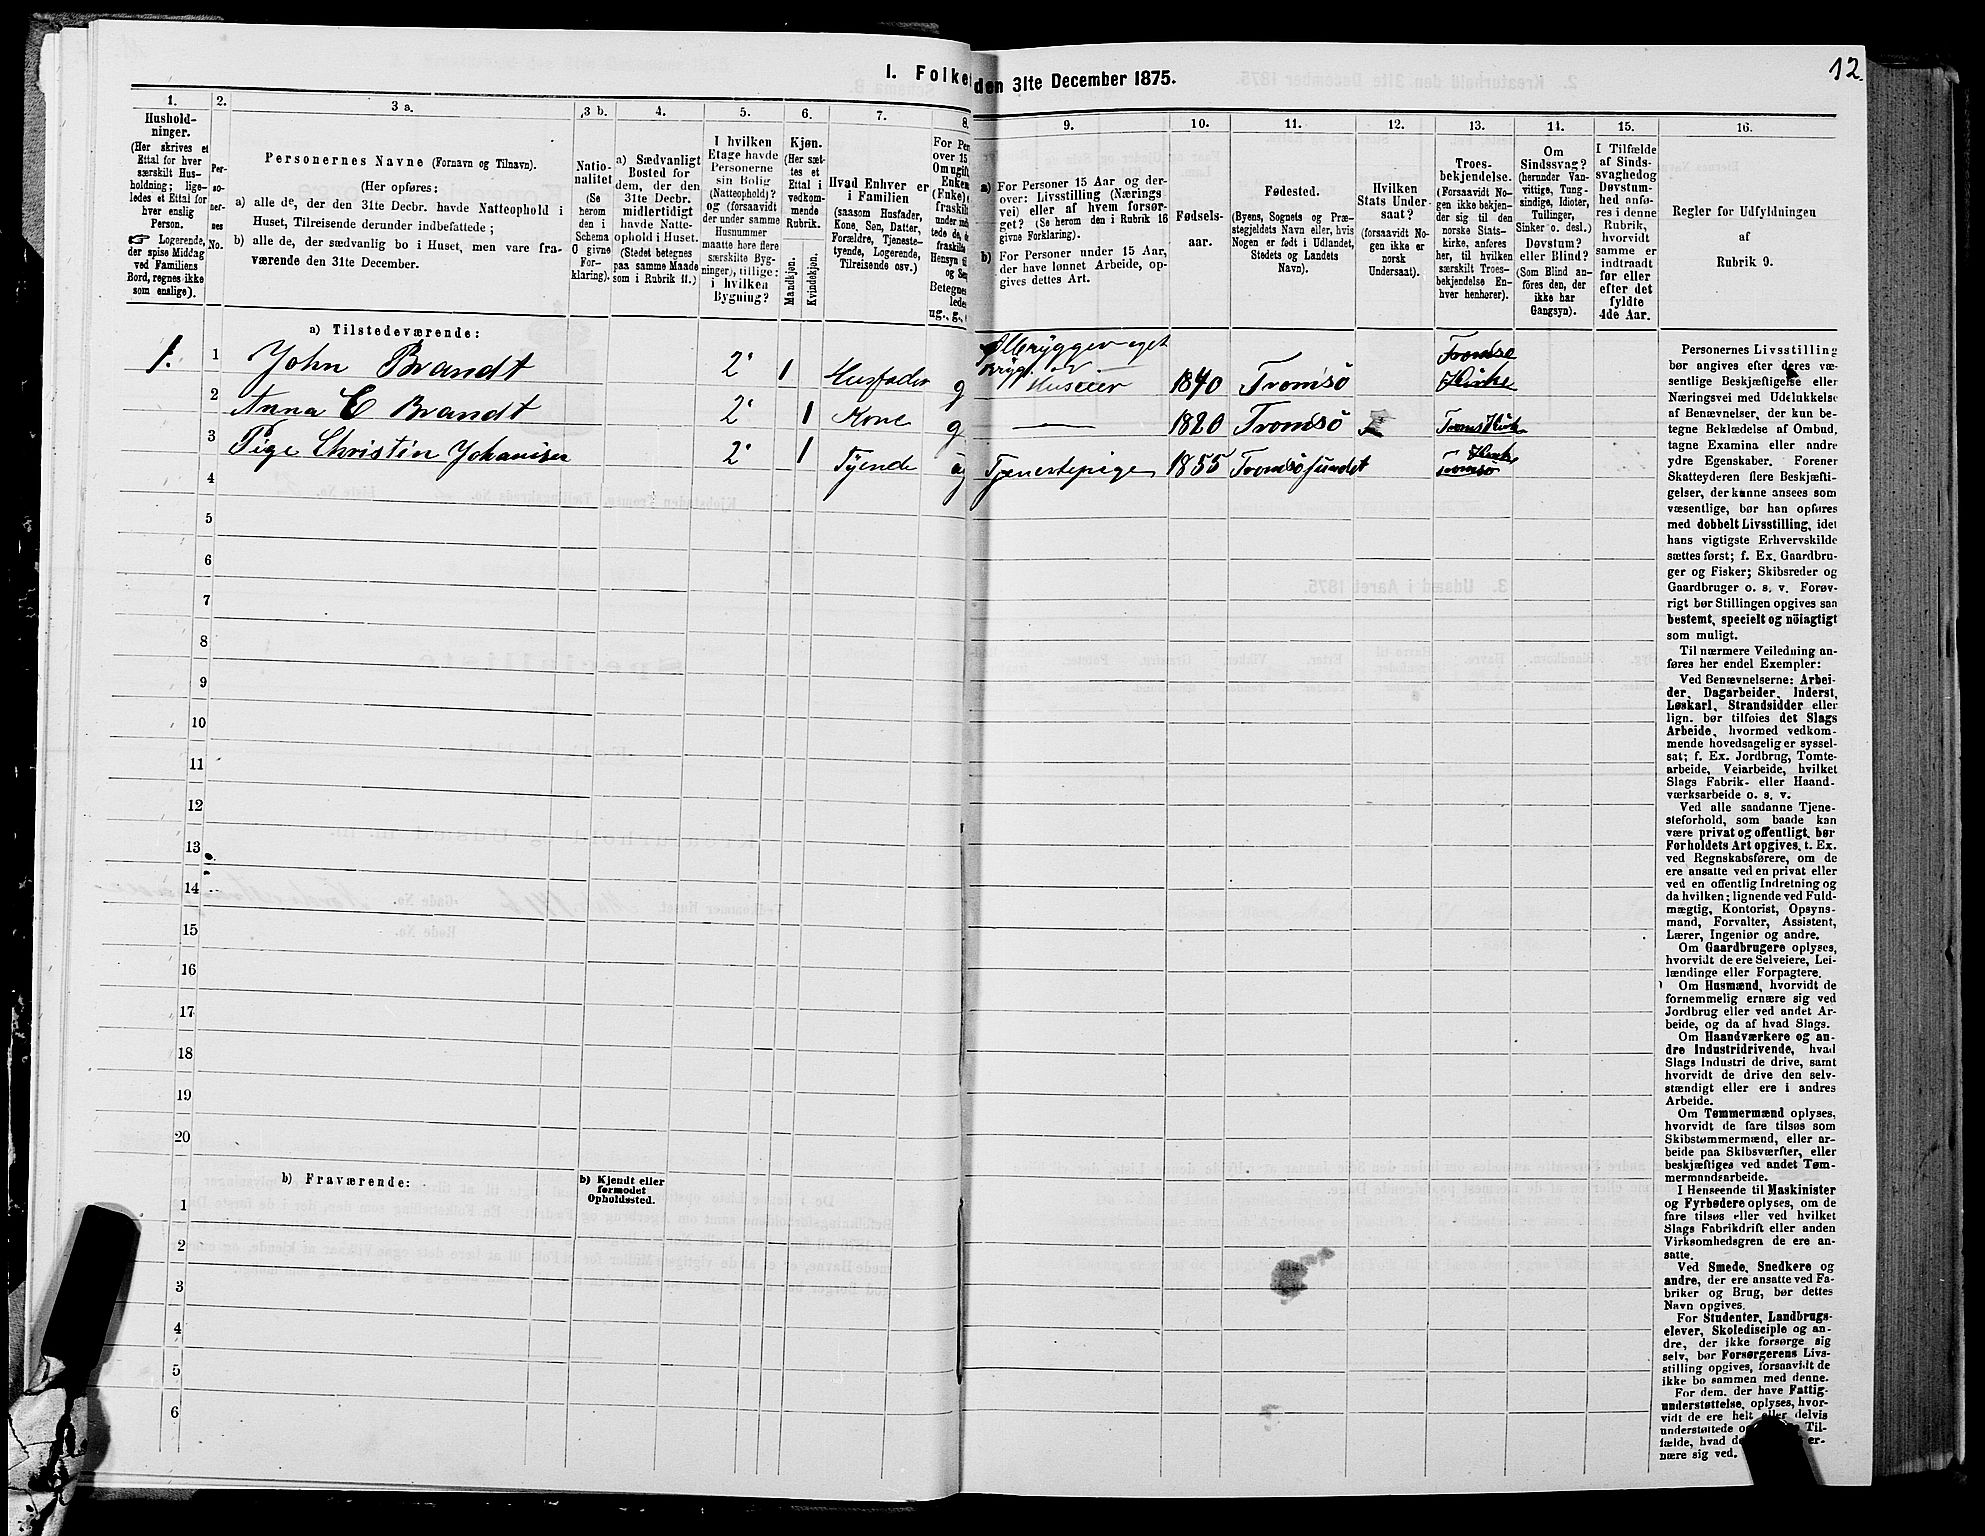 12.
I. Folket
den 31te December 1875.
1.
Hushold-
ninger.
(Her skrives et
Ettal for hver
særskilt Hus-
holdning; lige-
ledes et Ettal for
hver enslig
Person.
☞ Logerende,
der spise Middag
ved Familiens
Bord, regnes ikke
som enslige).
2.
Per-
so-
ner-
nes
No.
3 a.
Personernes Navne (Fornavn og Tilnavn).
(Her opføres:
a) alle de, der den 31te Decbr. havde Natteophold i
Huset, Tilreisende derunder indbefattede;
b) alle de, der sædvanlig bo i Huset, men vare fra-
værende den 31te December.
3 b.
Natio-
nalitet
(Se
herom
den i
Schema
O givne
For-
klaring).
4.
a) Sædvanligt
Bosted for
dem, der den
31te Decbr.
midlertidigt
havde Natte-
ophold i Huset.
(Stedet betegnes
paa samme Maade
som i Rubrik 11.)
5.
I hvilken
Etage havde
Personerne
sin Bolig
(Natteophold)?
og (forsaavidt
der under samme
Husnummer
maatte høre flere
særskilte Byg-
ninger), tillige:
i hvilken
Bygning?
6.
Kjøn.
(Her sæt-
tes et
Ettal i
vedkom-
mende
Rubrik.
Mandkjøn.
Kvindekjøn.
7.
Hvad Enhver er
i Familien
(saasom Husfader,
Kone, Søn, Datter,
Forældre, Tjeneste-
tyende, Logerende,
Tilreisende osv.)
8.
For Per
over 15
Om ugift
Enken
(Enke),
fraskilt
under ind
tede de, d
fraskilte
Hensyn til
og Sen
Betegnes
ledes
ug., g.,
9.
a) For Personer 15 Aar og der-
over: Livsstilling (Nærings-
vei) eller af hvem forsør-
get? (Se herom den i Rubrik 16
givne Forklaring).
b) For Personer under 15 Aar,
der have lønnet Arbeide, op-
gives dettes Art.
10.
Fødsels-
aar.
11.
Fødested.
(Byens, Sognets og Præ-
stegjeldets Navn eller, hvis
Nogen er født i Udlandet,
Stedets og Landets
Navn).
12.
Hvilken
Stats Under-
saat?
(forsaavidt No-
gen ikke er
norsk
Undersaat).
13.
Troes-
bekjendelse.
(Forsaavidt No-
gen ikke bekjen-
der sig til den
norske Stats-
kirke, anføres
her, til hvilken
særskilt Troes-
bekjendelse En-
hver henhører).
14.
Om
Sindssvag?
(herunder Van-
vittige, Tung-
sindige, Idioter,
Tullinger,
Sinker o. desl.)
Døvstum?
eller Blind?
(Som Blind an-
føres den, der
ikke har
Gangsyn).
15.
I Tilfælde
af Sinds-
svaghedog
Døvstum-
hed anfø-
res i denne
Rubrik,
hvorvidt
samme er
indtraadt
før eller
efter det
fyldte
4de Aar.
16.
Regler for Udfyldningen
af
Rubrik 9.
a) Tilstedeværende:
1. 1 John Brandt 2' 1 Husfader g Ølbrygger eget Brygr. Huseier 1840 Tromsö Tromsø Kirke
2 Anna C Brandt 2' 1 Kone g — 1820 Tromsö Troms Kirke
3 Pige Christin Johansen 2' 1 Tyende ug Tjenestepige 1855 Tromsösundet Kirke Tromsø
4
5
6
7
8
9
10
11
12
13
14
15
16
17
18
19
20
b) Fraværende:
b) Kjendt eller
formodet
Opholdssted.
1
2
3
4
5
6
Personernes Livsstilling
bør angives efter deres væ-
sentlige Beskjæftigelse eller
Næringsvei med Udelukkelse
af Benævnelser, der kun be-
tegne Beklædelse af Ombud,
tagne Examina eller andre
ydre Egenskaber. Forener
Skatteyderen flere Beskjæfti-
gelser, der kunne ansees som
væsentlige, bør han opføres
med dobbelt Livsstilling, idet
hans vigtigste Erhvervskilde
sættes først; f. Ex. Gaardbru-
ger og Fisker; Skibsreder og
Gaardbruger o. s. v. Forøv-
rigt bør Stillingen opgives saa
bestemt, specielt og nöiagtigt
som muligt.
Til nærmere Veiledning an-
føres her endel Exempler:
Ved Benævnelserne: Arbei-
der, Dagarbeider, Inderst,
Løskarl, Strandsidder eller
lign. bør tilføies det Slags
Arbeide, hvormed vedkom-
mende hovedsagelig er syssel-
sat; f. Ex. Jordbrug, Tomte-
arbeide, Veiarbeide, hvilket
Slags Fabrik- eller Haand-
værksarbeide o. s. v.
Ved alle saadanne Tjene-
steforhold, som baade kan
være privat og offentligt, bør
Forholdets Art opgives, t. Ex.
ved Regnskabsførere, om de
ere ansatte ved en privat eller
ved en offentlig Indretning og
da hvilken; lignende ved Fuld-
mægtig, Kontorist, Opsyns-
mand, Forvalter, Assistent,
Lærer, Ingeniør og andre.
Om Gaardbrugere oplyses,
hvorvidt de ere Selveiere, Lei-
lændinge eller Forpagtere.
Om Husmænd, hvorvidt de
fornemmelig ernære sig ved
Jordbrug eller ved andet Ar-
beide, og da af hvad Slags.
Om Haandværkere og an-
dre Industridrivende, hvad
Slags Industri de drive, samt
hvorvidt de drive den selv-
stændigt eller ere i andres
Arbeide.
Om Tømmermænd oplyses,
hvorvidt de fare tilsøs som
Skibstømmermænd, eller ar-
beide paa Skibsværfter, eller
beskjæftiges ved andet Tøm-
mermandsarbeide.
I Henseende til Maskinister
og Fyrbødere oplyses, om de
fare tilsøs eller ved hvilket
Slags Fabrikdrift eller anden
Virksomhedsgren de ere an-
satte.
Ved Smede, Snedkere og
andre, der ere ansatte ved Fa-
briker og Brug, bør dettes
Navn opgives.
For Studenter, Landbrugs-
elever, Skoledisciple og an-
dre, der ikke forsørge sig
selv, bør Forsørgerens Livs-
stilling opgives, forsaavidt de
ikke bo sammen med denne.
For dem, der have Fattig-
understøttelse, oplyses, hvor-
vidt de ere helt eller delvis
understøttede o Til-
fælde, hvad de er-
nære sig ved.